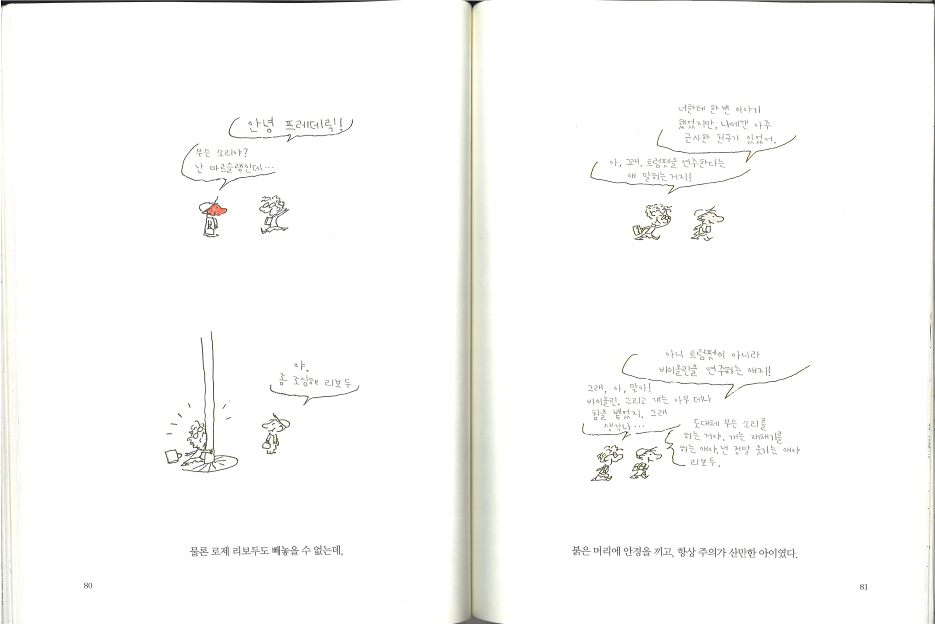 안녕 프레데릭!
무슨 소리야?
난 마르슬랭인데…
야,
좀 조심해 리보두
물론 로제 리보두도 빼놓을 수 없는데,
80
너한테 한 번 이야기
했었지만, 나에겐 아주
근사한 친구가 있었어.
아, 그래. 트럼펫을 연주한다는
애 말하는거지!
아니 트럼펫이 아니라
바이올린을 연주하는 애지!
그래, 아, 맞아!
바이올린. 그리고 걔는 아무데나
침을 뱉었지. 그래
생각나…
도대체 무슨 소리를
하는 거야, 걔는 재채기를
하는 애야. 넌 정말 웃기는 애야
리보두.
붉은 머리에 안경을 끼고, 항상 주의가 산만한 아이였다.
81